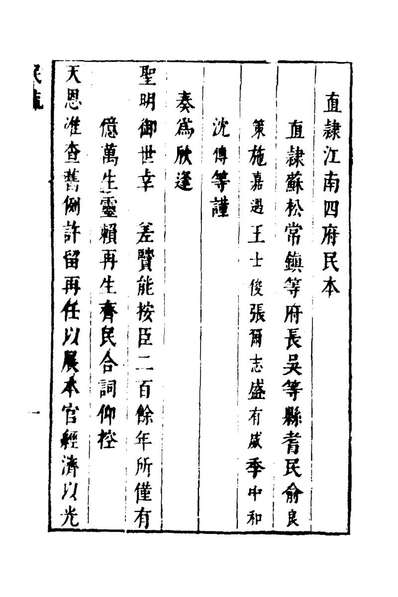 直隸江南四府民本
直隸蘇松常鎮等府長吳等縣耆民俞良
策施嘉遇王士俊張爾志盛有咸季中和
沈傳等謹
奏爲欣逢
聖明御世幸 差賢能按臣二百餘年所僅有
億萬生靈賴再生齊民合詞仰控
天恩准查舊例許留再任以展本官經濟以光
民疏
一